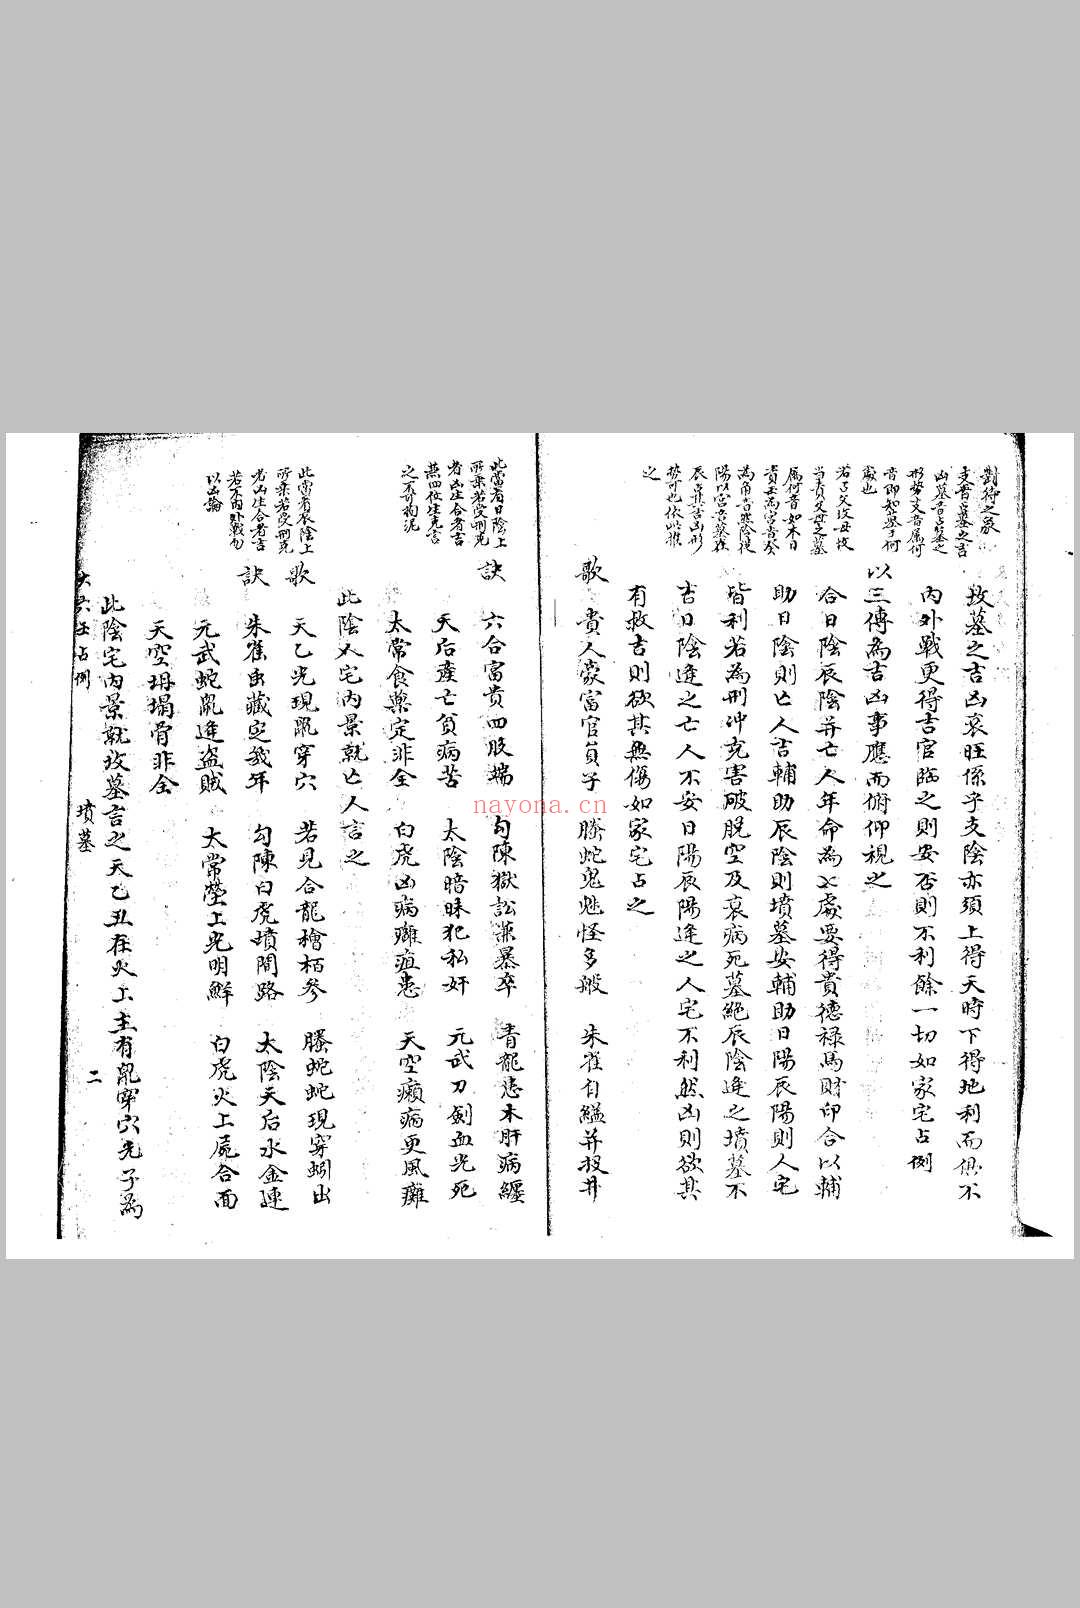 對待之象
支音占墓之吉
凶墓音占墓之
形勢支音屬何
音即知葬于何
處也
若子父坟母坟
當責父母之墓
屬何音如木日
責壬為宮音癸
為角音然陰從
陽以宮音墓在
辰其吉凶形
勢可也依此推
之
坟墓之吉凶衰旺係乎支陰亦須上得天時下得地利而俱不
內外戰更得吉官臨之則安否則不利餘一切如家宅占例
以三傳為吉凶事應而俯仰視之
合日陰辰陰并亡人年命為七處要得貴德祿馬財印合以輔
助日陰則亡人吉輔助辰陰則墳墓安輔助日陽辰陽則人宅
皆利若為刑冲克害破脫空及衰病死墓絕辰陰逢之墳墓不
吉日陰逢之亡人不安日陽辰陽逢之人宅不利然凶則欲其
有救吉則欲其無傷如家宅占之
歌 貴人蒙富官員子 螣蛇鬼魅怪多般 朱雀自縊并投井
此當看日陰上
所乘若受刑克
者凶生合者吉
無四位生克言
之不可拘泥
訣 六合富貴四肢端 勾陳獄訟兼暴卒 青龍患木肝病纏
天后產亡貧病苦 太陰暗昧犯私奸 元武刀劍血光死
太常食藥定非全 白虎凶病癰疽患 天空癩病更風癱
此陰人宅內景就亡人言之
此當看辰陰上
所乘若受刑克
者凶生合者吉
若不內外戰勿
以凶論
歌 天乙光現鼠穿穴 若見合龍檜栢參 螣蛇蛇現穿蚓出
訣 朱雀虫藏定幾年 勾陳白虎墳間路 太陰天后水金連
元武蛇鼠逢盜賊 太常塋上光明鮮 白虎火上屍合面
天空坍塌骨非全
此陰宅內景就坟墓言之天乙丑在火上主有鼠穿穴先子為
大六壬占例 墳墓 二
nayona.cn